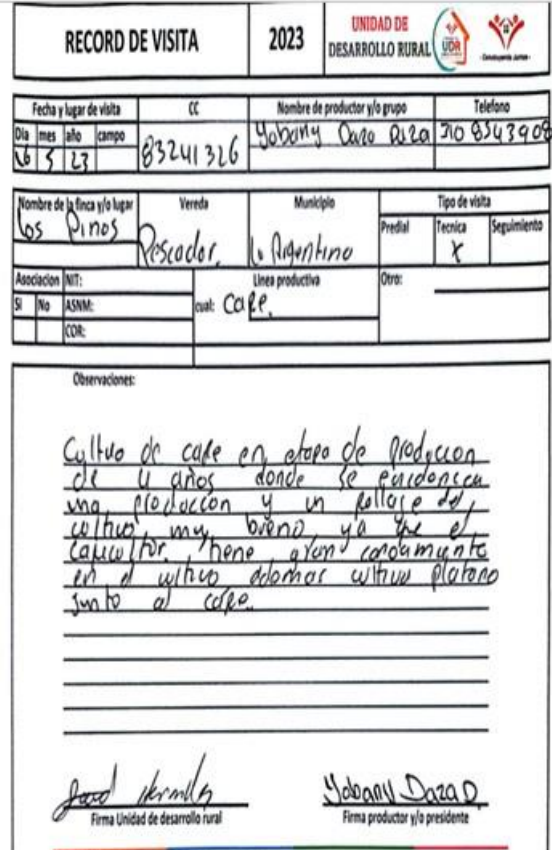 RECORD DE VISITA
2023
UNIDAD DE
DESARROLLO RURAL
UDR
Construyendo Juntos
Fecha y lugar de visita
CC
Nombre de productor y/o grupo
Telefono
Dia mes año campo
16 5 23
83241326
Yobany Daza Daza
310 8543908
Nombre de la finca y/o lugar
Vereda
Municipio
Tipo de visita
Los Pinos
Pescador.
La Argentina
Predial
Tecnica
Seguimiento
X
Asociacion
NIT:
Linea productiva
Otro:
Si No ASNM:
cual: Cafe.
COR:
Observaciones:
Cultivo de cafe en etapa de Produccion
de 4 años donde se evidencia
una produccion y un follaje del
cultivo muy bueno ya que el
caficultor tiene gran
en el cultivo ademas cultivo platano
junto al cafe.
Firma Unidad de desarrollo rural
Yobany Daza D.
Firma productor y/o presidente